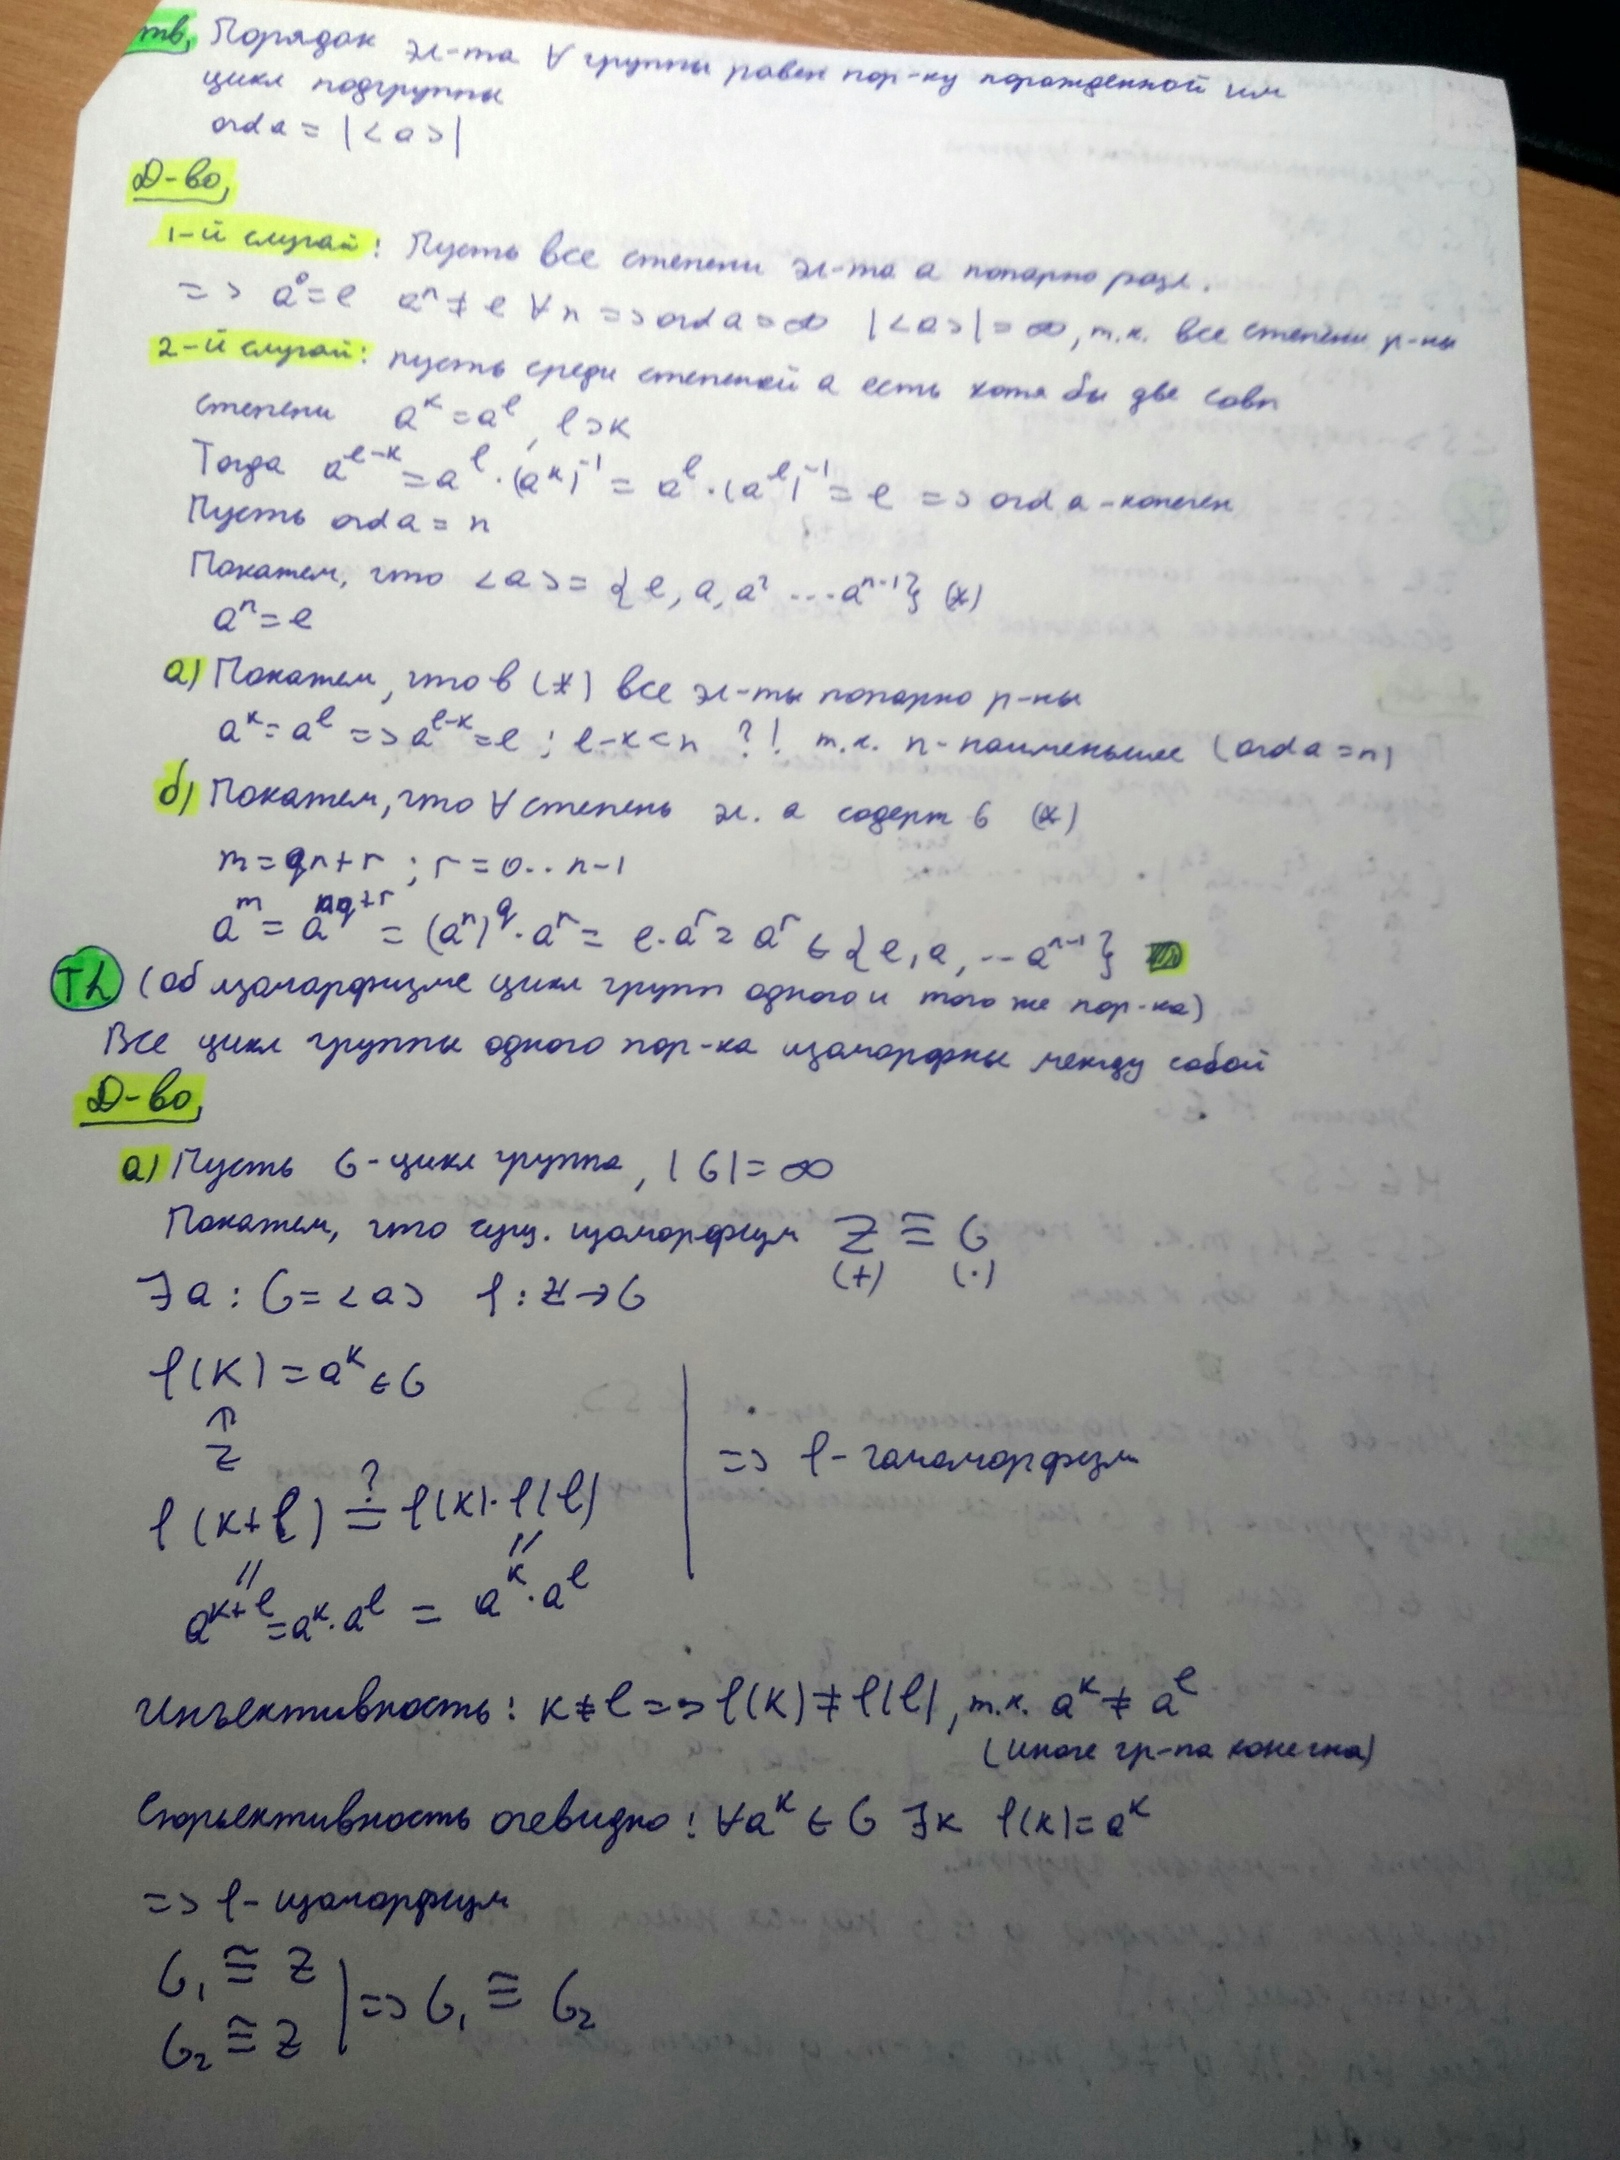 тв, Порядок эл-та ∀ группы равен пор-ку порожденной им
цикл подгруппы
ord a = |<a>|
Д-во,
1-й случай: Пусть все степени эл-та a попарно разл.
=> a⁰=e aⁿ≠e ∀n => ord a=∞ |<a>|=∞, т.к. все степени р-ны
2-й случай: пусть среди степеней a есть хотя бы две совп
степени aᵏ=aˡ, l>k
Тогда aˡ⁻ᵏ=aˡ·(aᵏ)⁻¹=aˡ·(aˡ)⁻¹=e => ord a-конечен
Пусть ord a = n
Покажем, что <a>={e, a, a² ...aⁿ⁻¹} (*)
aⁿ=e
а) Покажем, что в (*) все эл-ты попарно р-ны
aᵏ=aˡ => aˡ⁻ᵏ=e; l-k<n ?! т.к. n-наименьшее (ord a=n)
б) Покажем, что ∀ степень эл. a содерж в (*)
m=qn+r ; r=0..n-1
aᵐ=a^{nq+r}=(aⁿ)^q·aʳ=e·aʳ=aʳ∈{e, a, ...aⁿ⁻¹}
Th (об изоморфизме цикл групп одного и того же пор-ка)
Все цикл группы одного пор-ка изоморфны между собой
Д-во,
а) Пусть G-цикл группа, |G|=∞
Покажем, что сущ. изоморфизм Z ≅ G
(+) (·)
∃a : G=<a> f : Z→G
f(k)=aᵏ∈G
↑
Z
=> f-гомоморфизм
?
f(k+l) = f(k)·f(l)
= =
aᵏ⁺ˡ=aᵏ·aˡ = aᵏ·aˡ
Инъективность: k≠l => f(k)≠f(l), т.к. aᵏ≠aˡ
(иначе гр-па конечна)
Сюръективность очевидно: ∀aᵏ∈G ∃k f(k)=aᵏ
=> f-изоморфизм
G₁ ≅ Z
=> G₁ ≅ G₂
G₂ ≅ Z